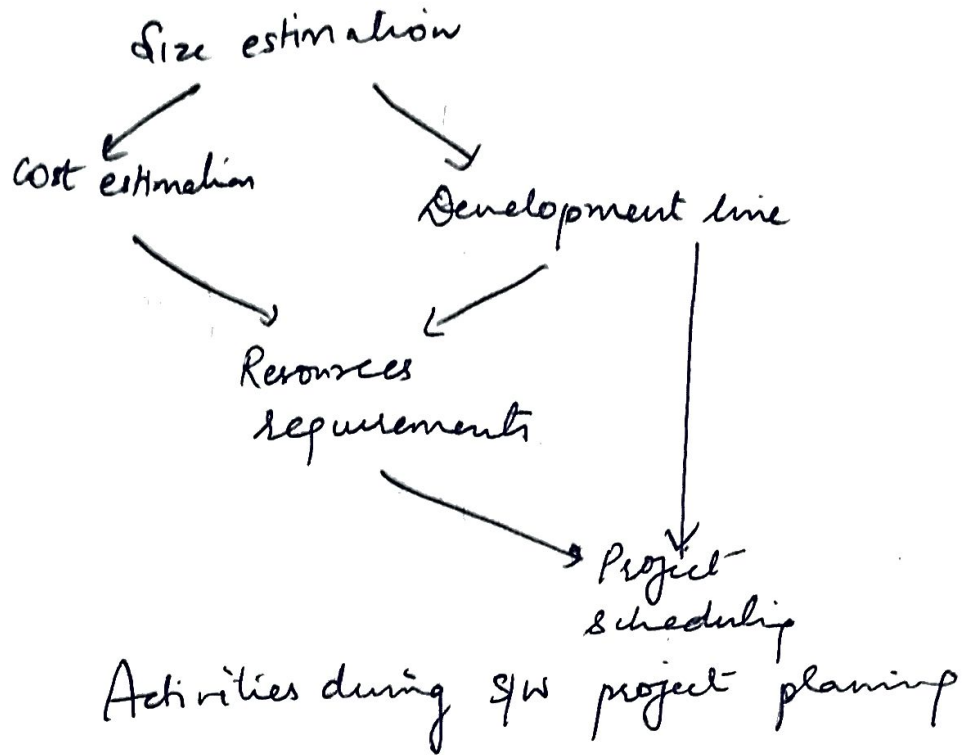 Size estimation
Cost estimation
Development time
Resources
requirements
Project
scheduling
Activities during S/W project planning